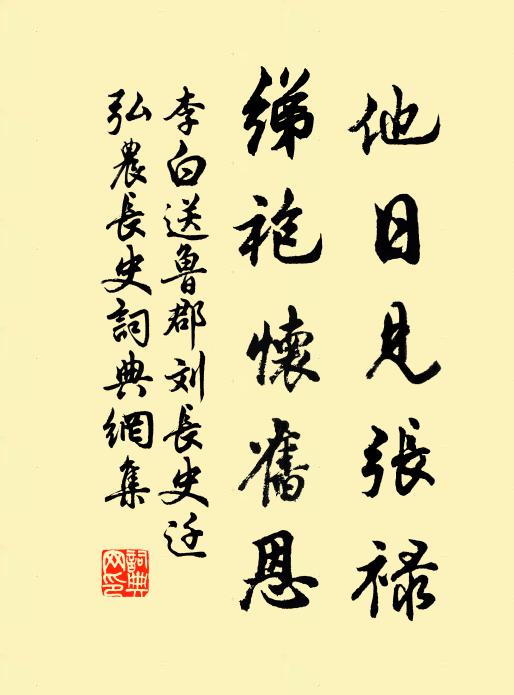 他日見張祿
綈袍懷舊恩
李白送魯郡刘長史迁
弘農長史詞典網集
詞典網印